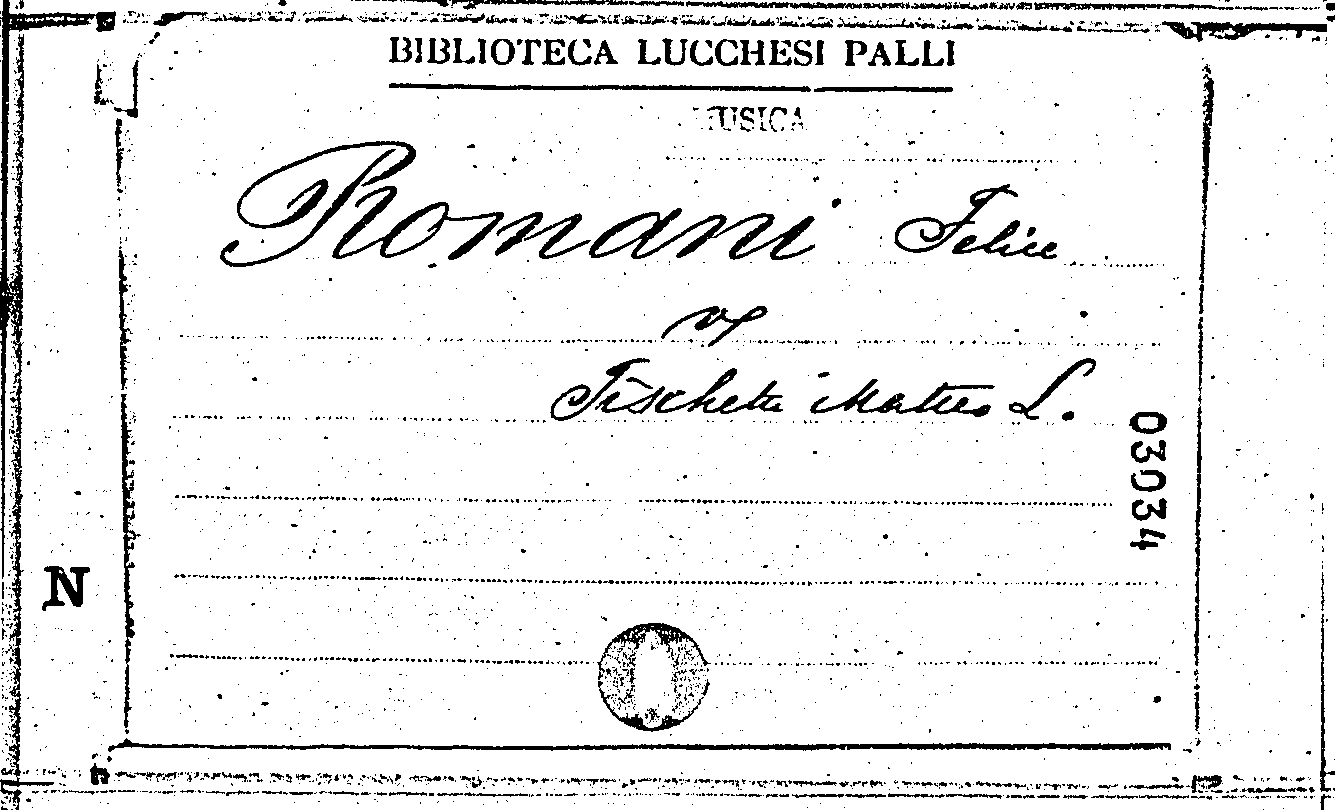 BIBLIOTECA LUCCHESI PALLI
MUSICA
Romani Felice
v
Fischetti Matteo L.
03034
N